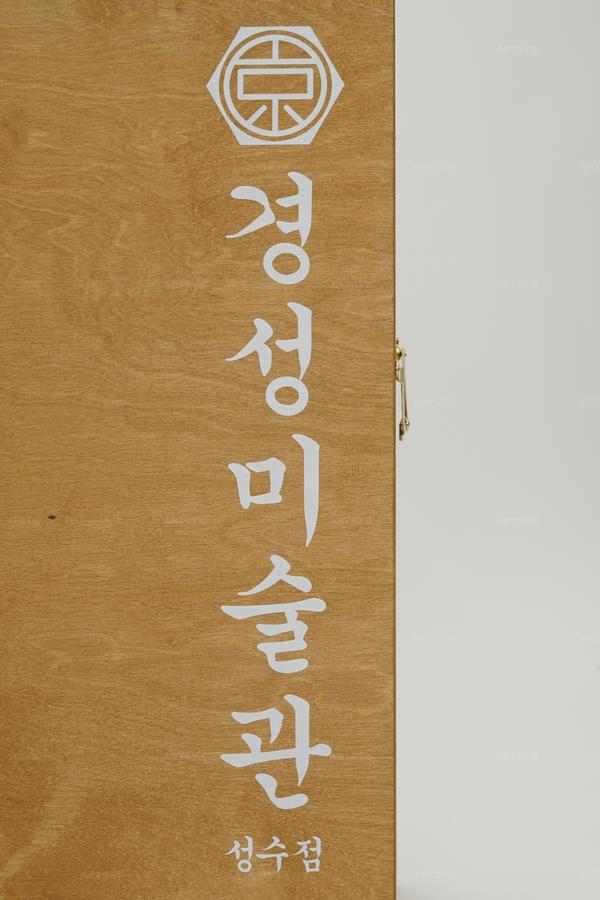 京
경성미술관
성수점